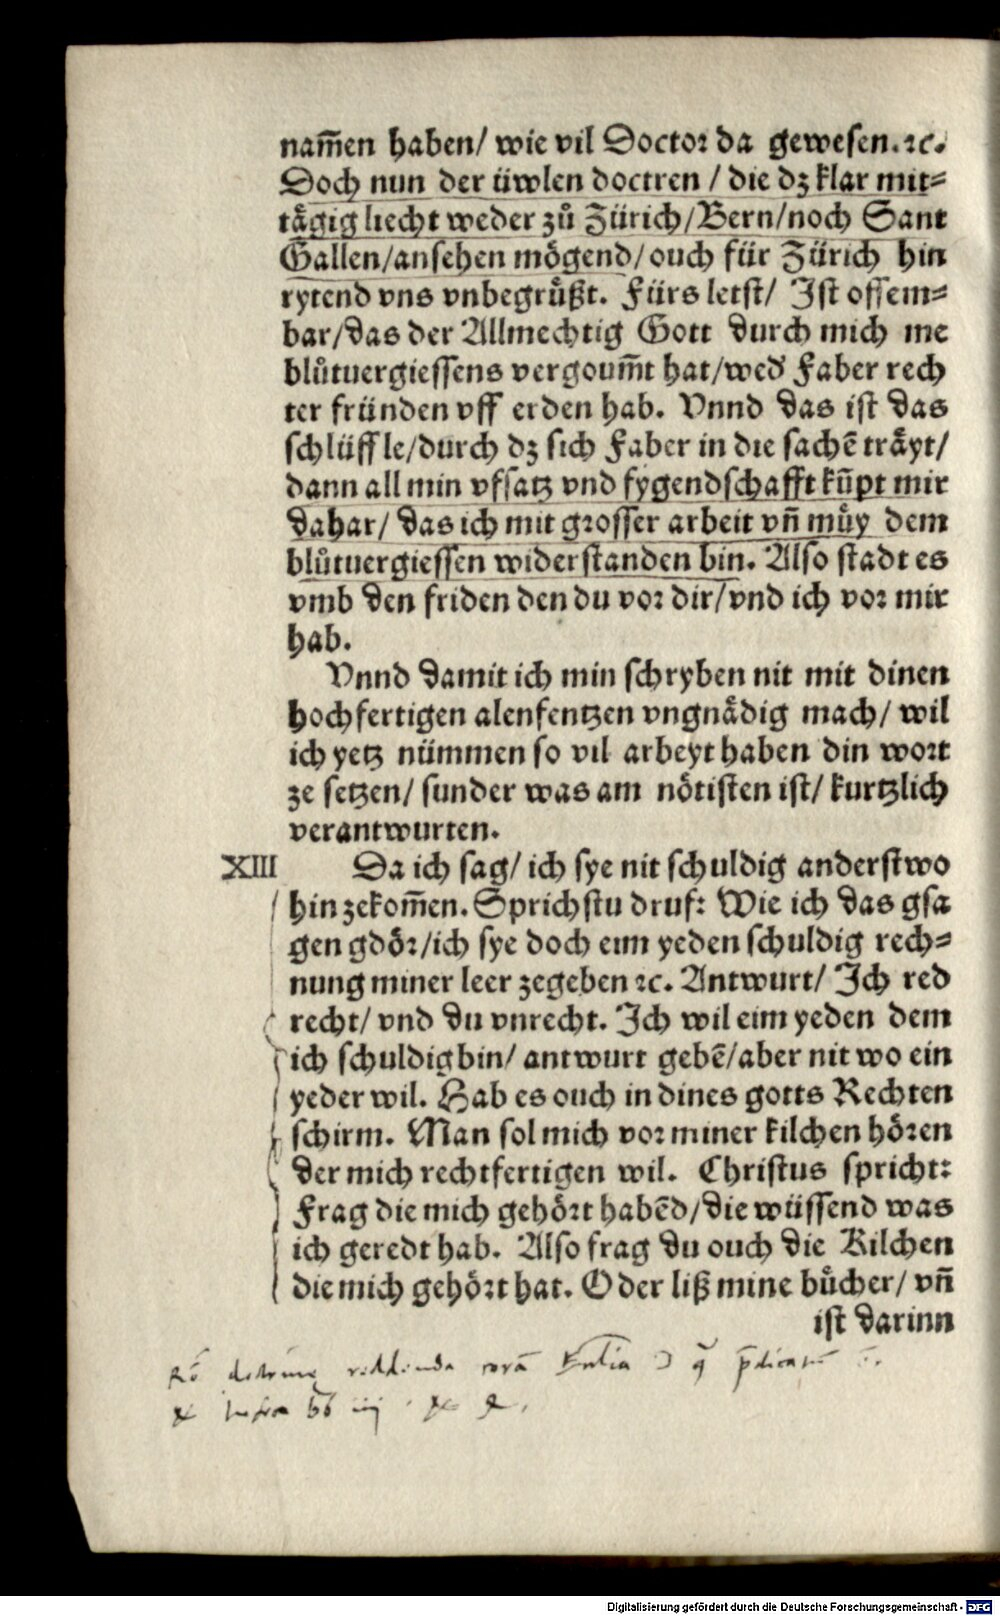 nam̄en haben/ wie vil Doctor da gewesen. ꝛc.
Doch nun der üwlen doctren / die dz klar mit⸗
tågig liecht weder zů Zürich/Bern/noch Sant
Gallen/ansehen mögend/ouch für Zürich hin
rytend vns vnbegrüßt. Fürs letst/ Ist offem⸗
bar/das der Allmechtig Gott durch mich me
blůtuergiessens vergoum̄t hat/wed̓ Faber rech
ter fründen vff erden hab. Vnnd das ist das
schlüffle/durch dz sich Faber in die sachē träyt/
dann all min vfsatz vnd fygendschafft kūpt mir
dahar/ das ich mit grosser arbeit vn̄ müy dem
blůtuergiessen widerstanden bin. Also stadt es
vmb den friden den du vor dir/vnd ich vor mir
hab.
Vnnd damit ich min schryben nit mit dinen
hochfertigen alenfentzen vngnädig mach/ wil
ich yetz nümmen so vil arbeyt haben din wort
ze setzen/ sunder was am nötisten ist/ kurtzlich
verantwurten.
XIII Da ich sag/ ich sye nit schuldig anderstwo
hin zekom̄en. Sprichstu druf: Wie ich das gsa
gen gdör/ich sye doch eim yeden schuldig rech⸗
nung miner leer zegeben ꝛc. Antwurt/ Ich red
recht/ vnd du vnrecht. Ich wil eim yeden dem
ich schuldig bin/ antwurt gebē/aber nit wo ein
yeder wil. Hab es ouch in dines gotts Rechten
schirm. Man sol mich vor miner kilchen hören
der mich rechtfertigen wil. Christus spricht:
Frag die mich gehört habēd/die wüssend was
ich geredt hab. Also frag du ouch die Kilchen
die mich gehört hat. Oder liß mine bücher/ vn̄
ist darinn
doctrinę reddenda corā
infra
Digitalisierung gefördert durch die Deutsche Forschungsgemeinschaft - DFG